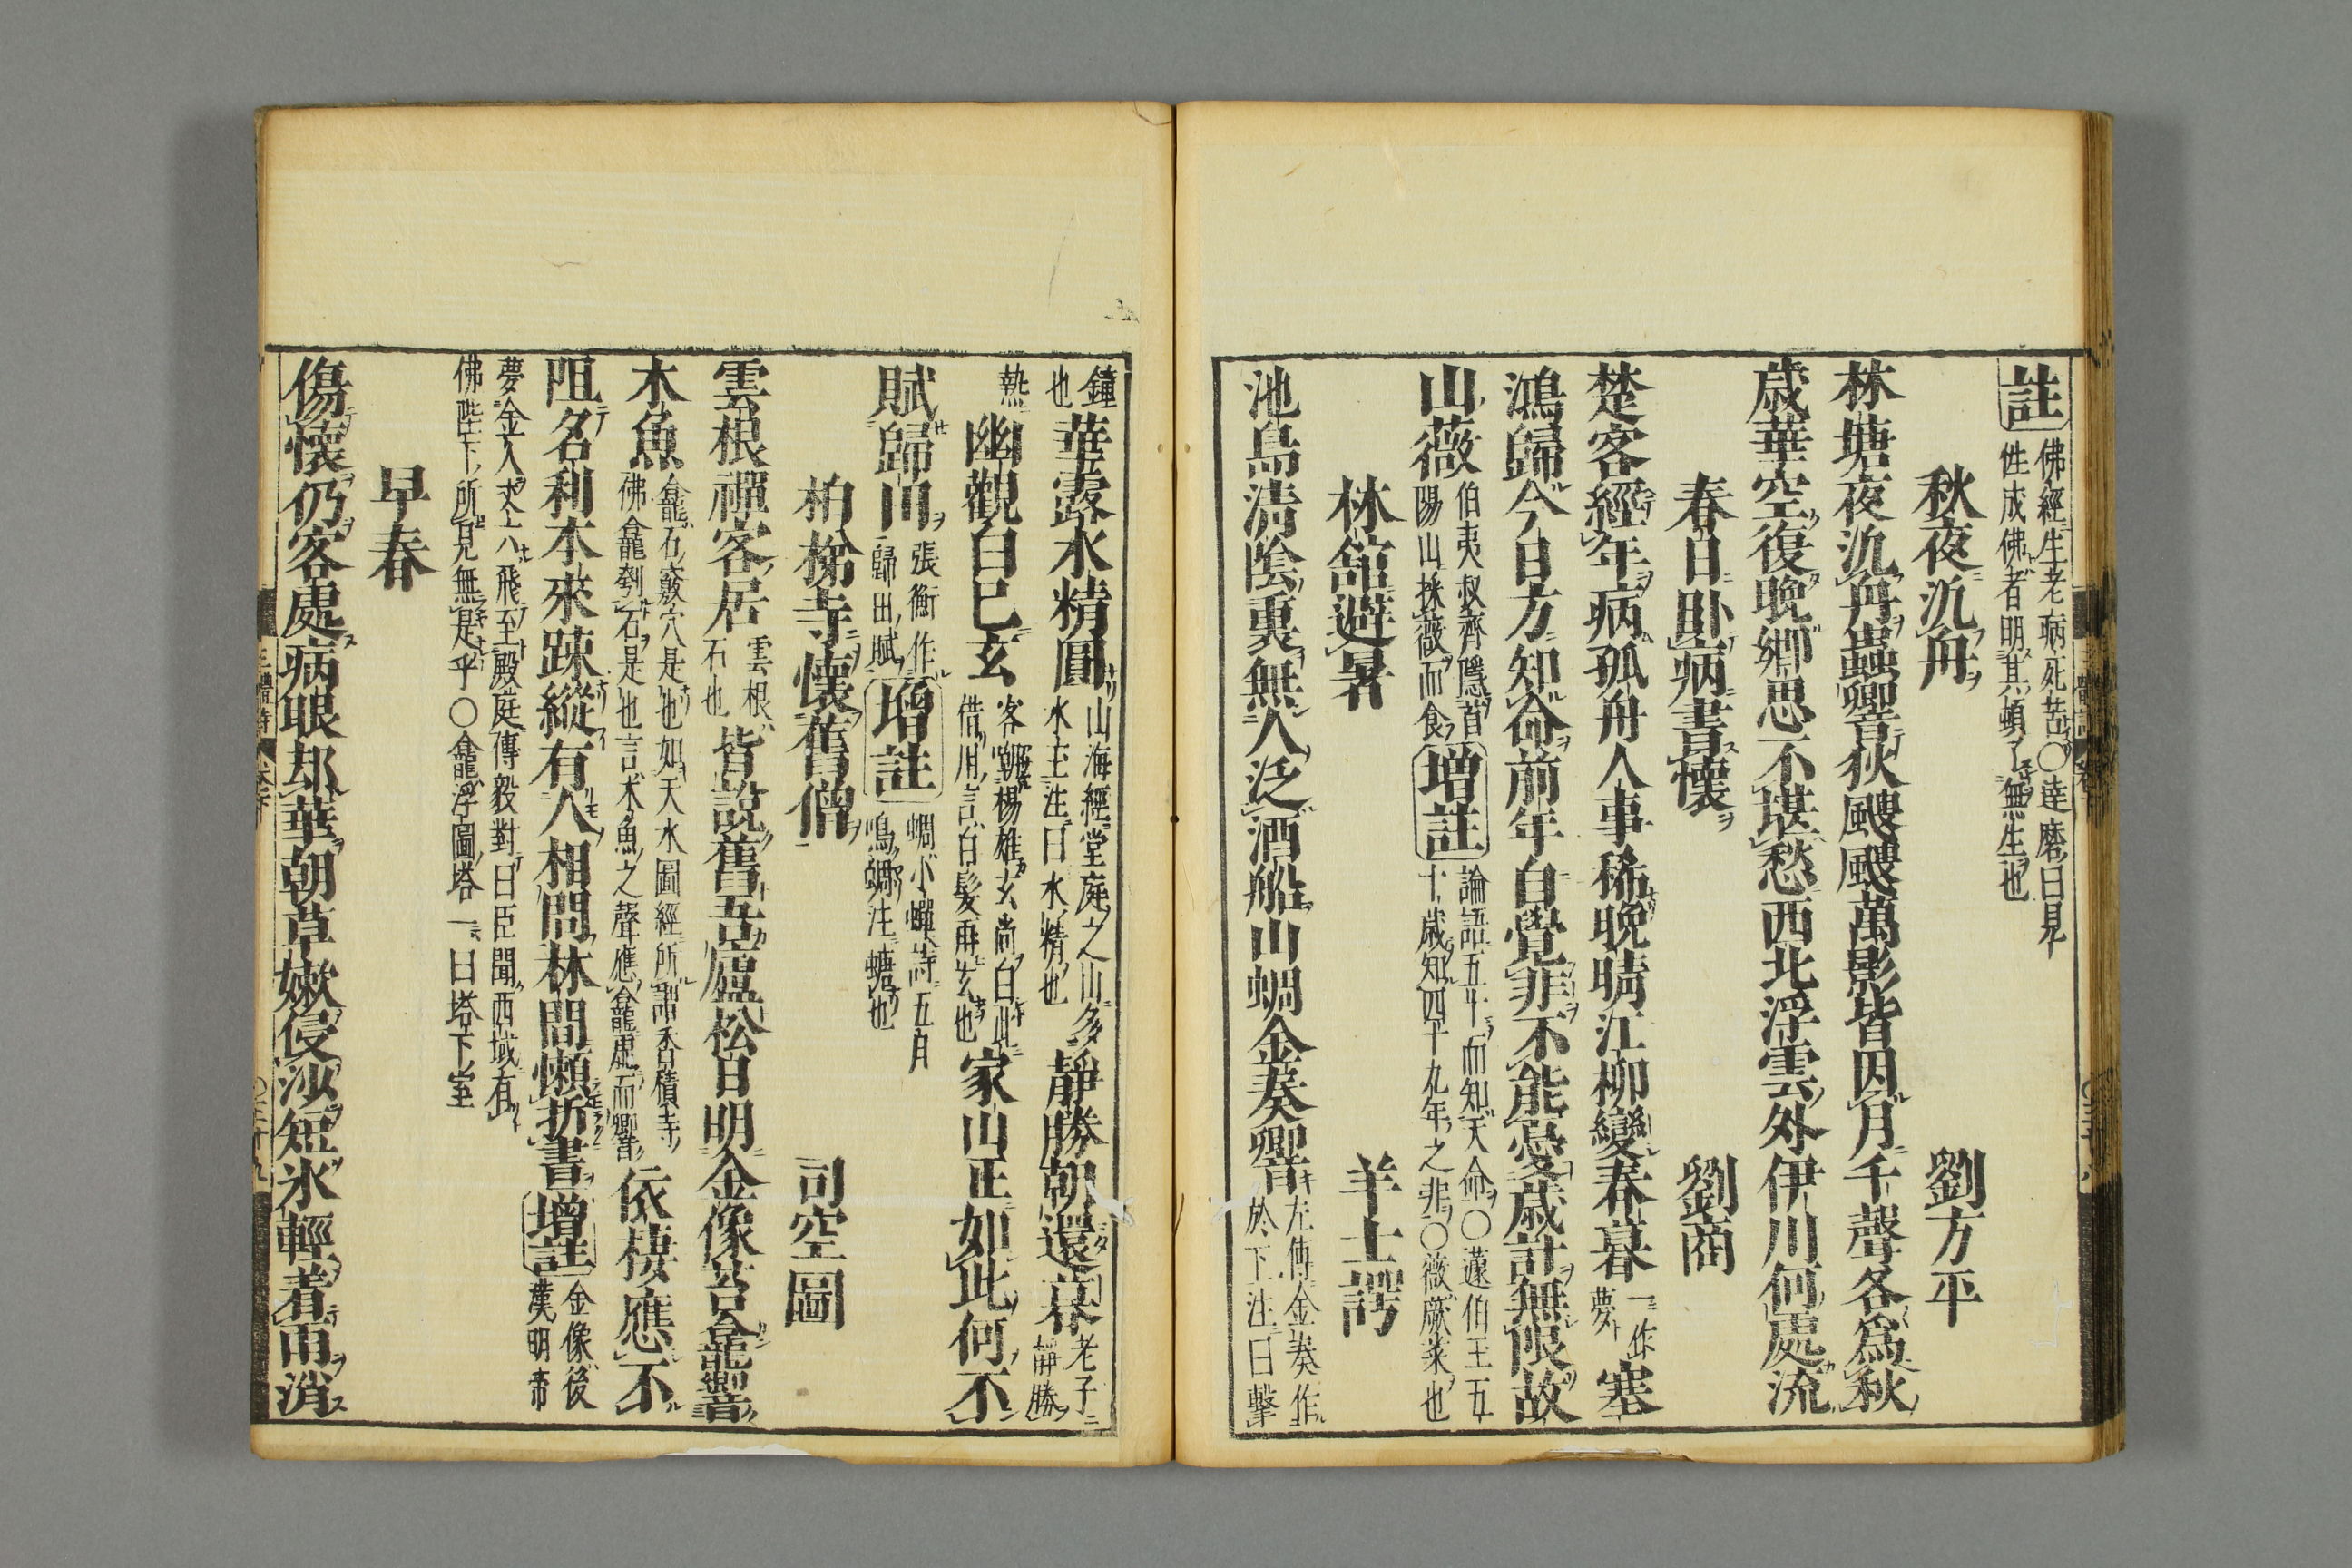 註 佛經生老病死苦○達磨曰見
性成佛者明其頓了無生也
秋夜汎舟 劉方平
林塘夜汎舟蟲響荻颼颼萬影皆因月千聲各爲秋
歲華空復晚鄉思不堪愁西北浮雲外伊川何處流
春日臥病書懷 劉商
楚客經年病孤舟人事稀晚晴江柳變春暮 一作夢 塞
鴻歸今日方知命前年自覺非不能憂歲計無限故
山薇 伯夷叔齊隱首陽山採薇而食 增註 論語五十而知天命○蘧伯玉五十歲知四十九年之非○薇蕨菜也
林館避暑 羊士諤
池島淸陰裏無人泛酒船山蜩金奏響 左傳金奏作於下注曰擊
鐘也 華露水精圓 山海經堂庭之山多水玉注曰水精也 靜勝朝還暮 老子靜勝
熱 幽觀白已玄 客嘲楊雄玄尚白此借用言白髮再玄也 家山正如此何不
賦歸川 張衡作歸田賦 增註 蜩小蟬詩五月鳴蜩注螗也
柏梯寺懷舊僧 司空圖
雲根禪客居 雲根石也 皆說舊吾廬松日明金像苔龕響
木魚 龕石竅穴是也如天水圖經所謂香積寺佛龕刳石是也言木魚之聲應龕虛而響 依棲應不
阻名利本來踈縱有人相問林間懶折書 增註 金像後漢明帝
夢金人丈六飛至殿庭傅毅對曰臣聞西域有
佛陛下所見無是乎○龕浮圖塔一曰塔下室
早春
傷懷仍客處病眼却華朝草嫩侵沙短氷輕着雨消